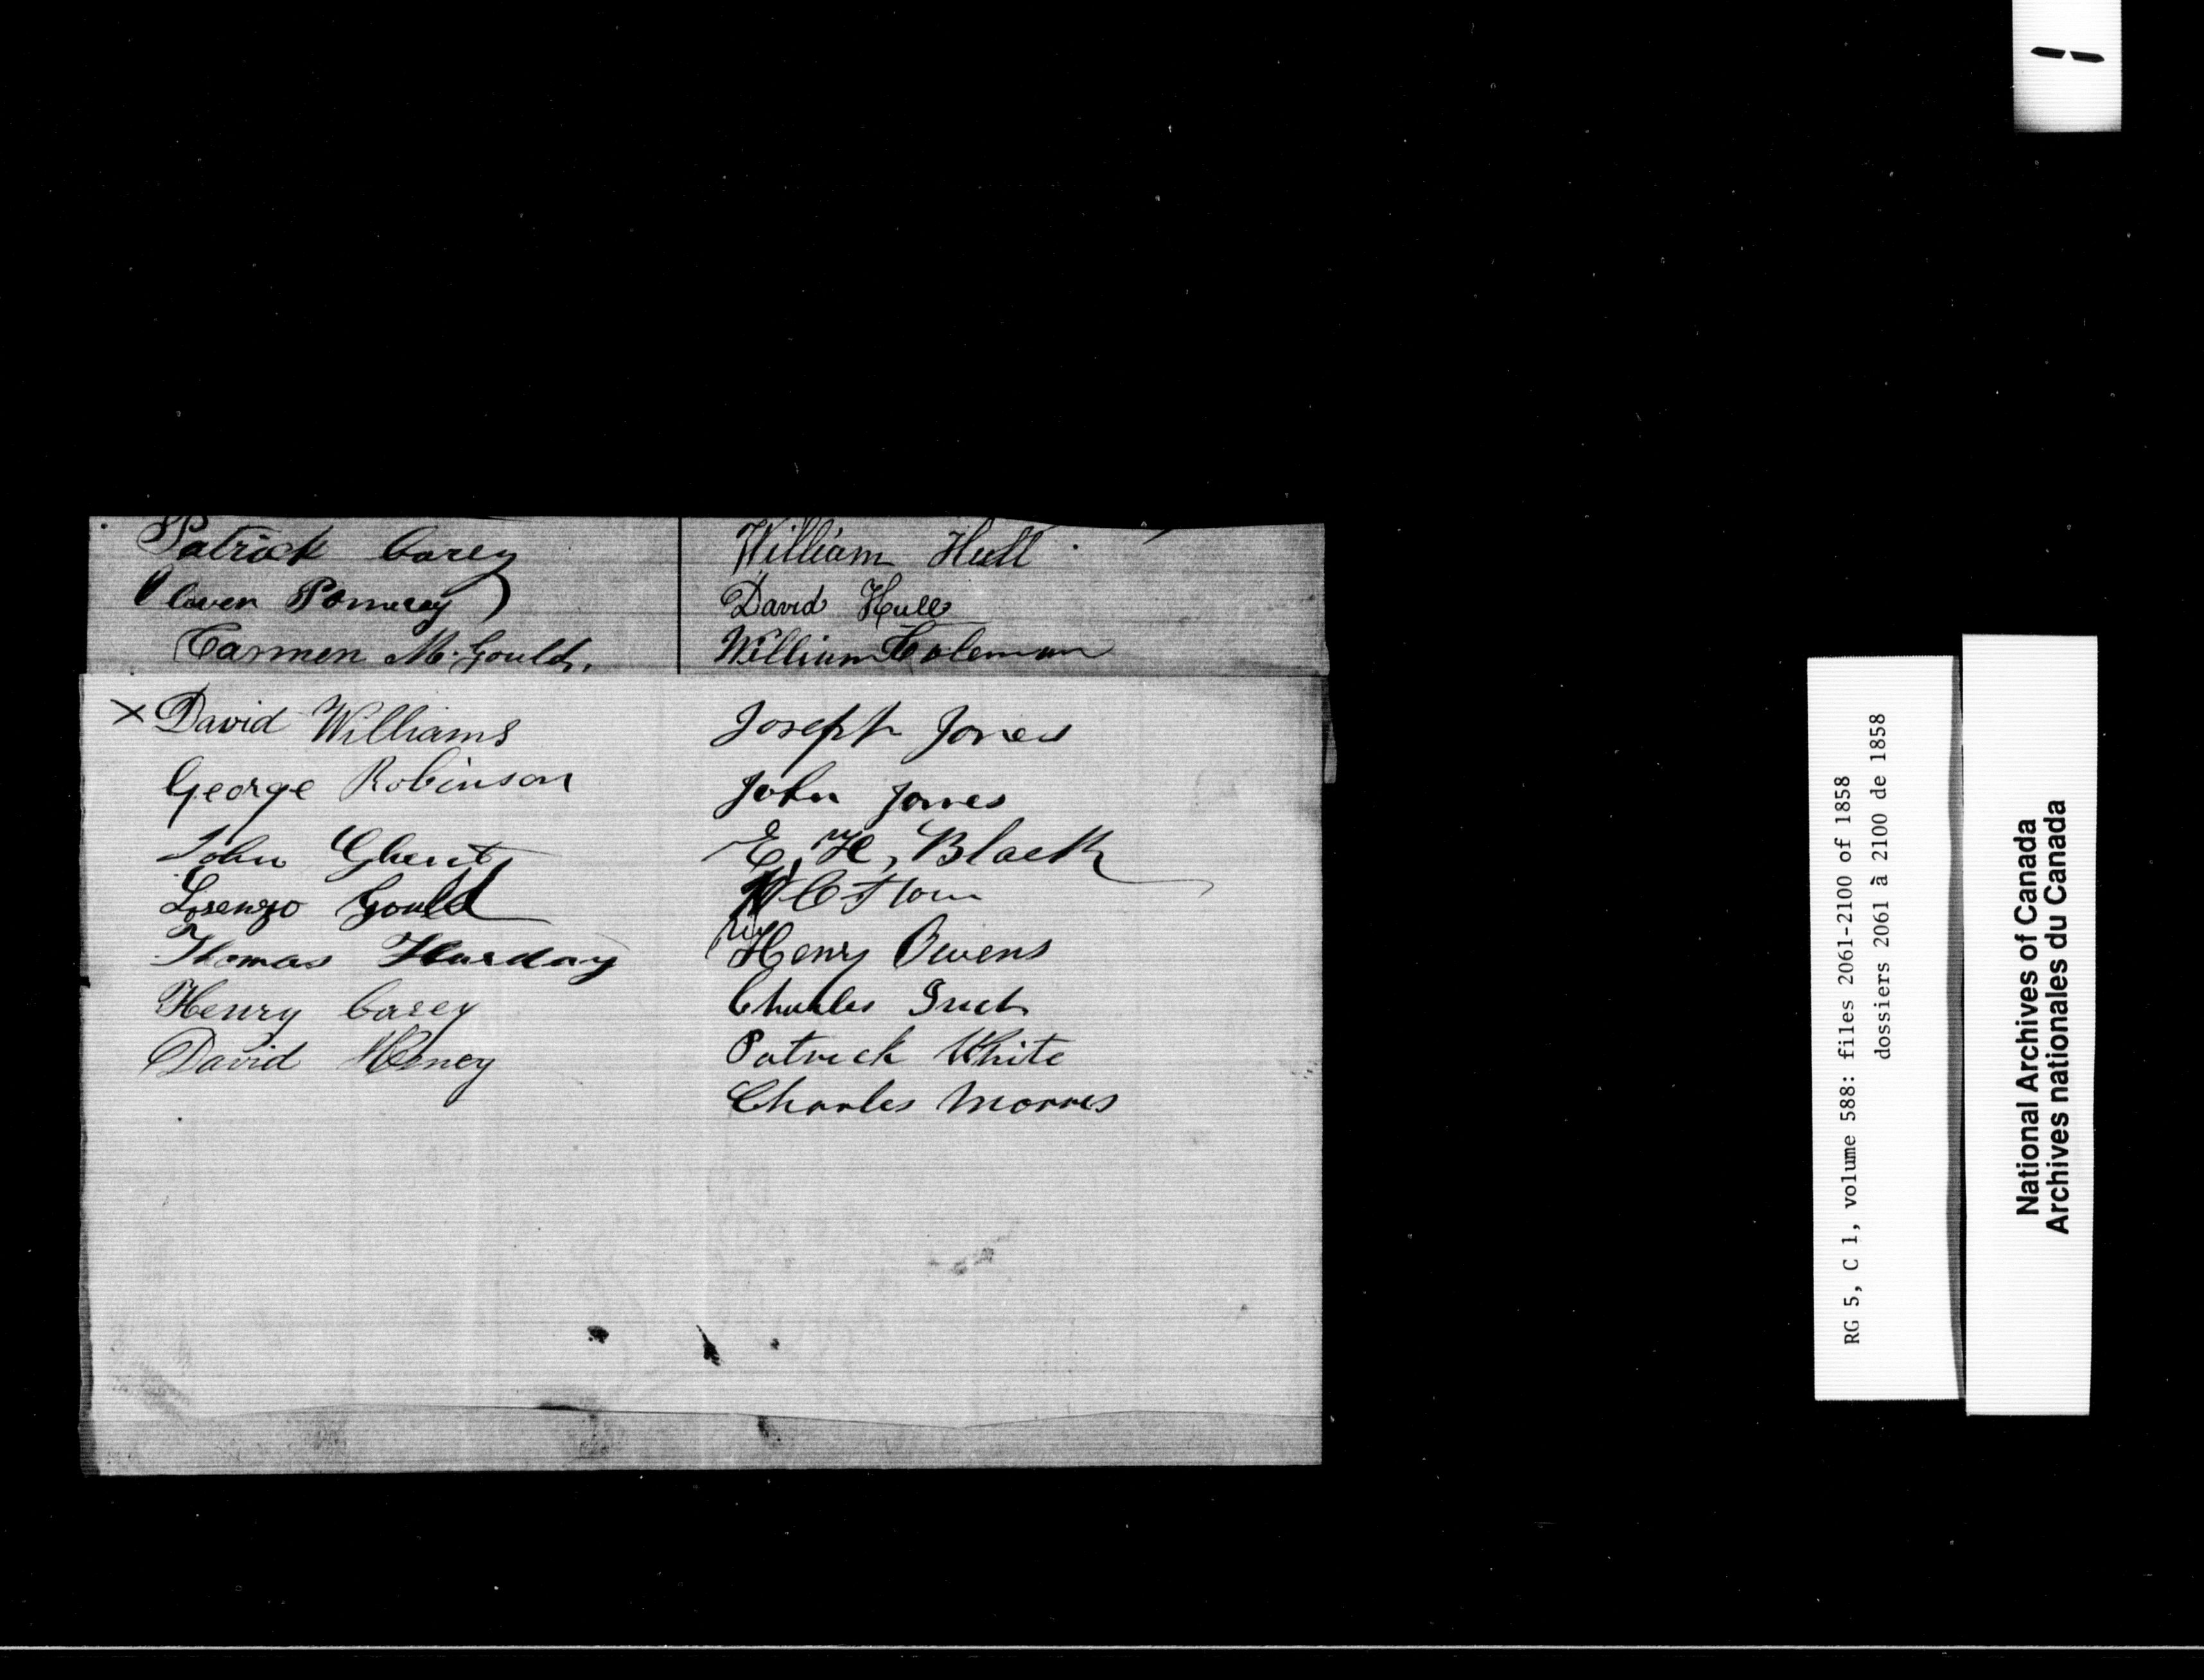 Patrick Carey
Oliver Pomeroy
Carmen M. Gould.
X David Williams
George Robinson
John Ghent
Lorenzo Gould
Thomas
Henry Carey
David
William Hull
David Hull
William Coleman
Joseph Jones
John Jones
E. H, Black
Henry Owens
Charles
Patrick White
Charles Morres
RG 5, C 1, volume 588: files 2061-2100 of 1858
dossiers 2061 à 2100 de 1858
National Archives of Canada
Archives nationales du Canada